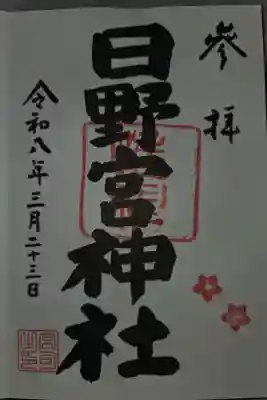 參拝
日野宮神社
令和八年三月二十三日